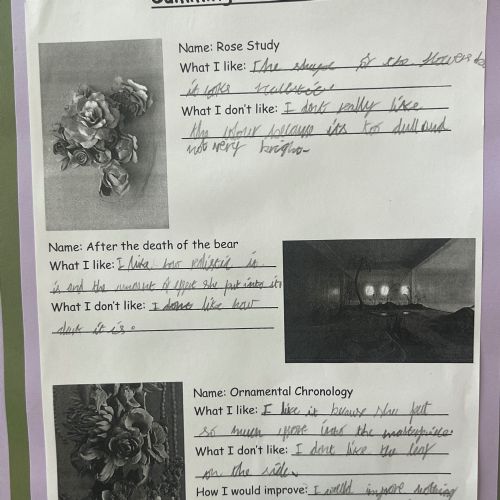 Name: Rose Study
What I like: The shape of the flowers
it looks realistic.
What I don't like: I dont really like
the colour because its too dull and
not very bright.
Name: After the death of the bear
What I like: I like how realistic it
is and the amount of effort she put into it
What I don't like: I dont like how
dark it is.
Name: Ornamental Chronology
What I like: I like it because she put
so much more into the masterpiece.
What I don't like: I dont like the leaf
on the side.
How I would improve: I would improve nothing